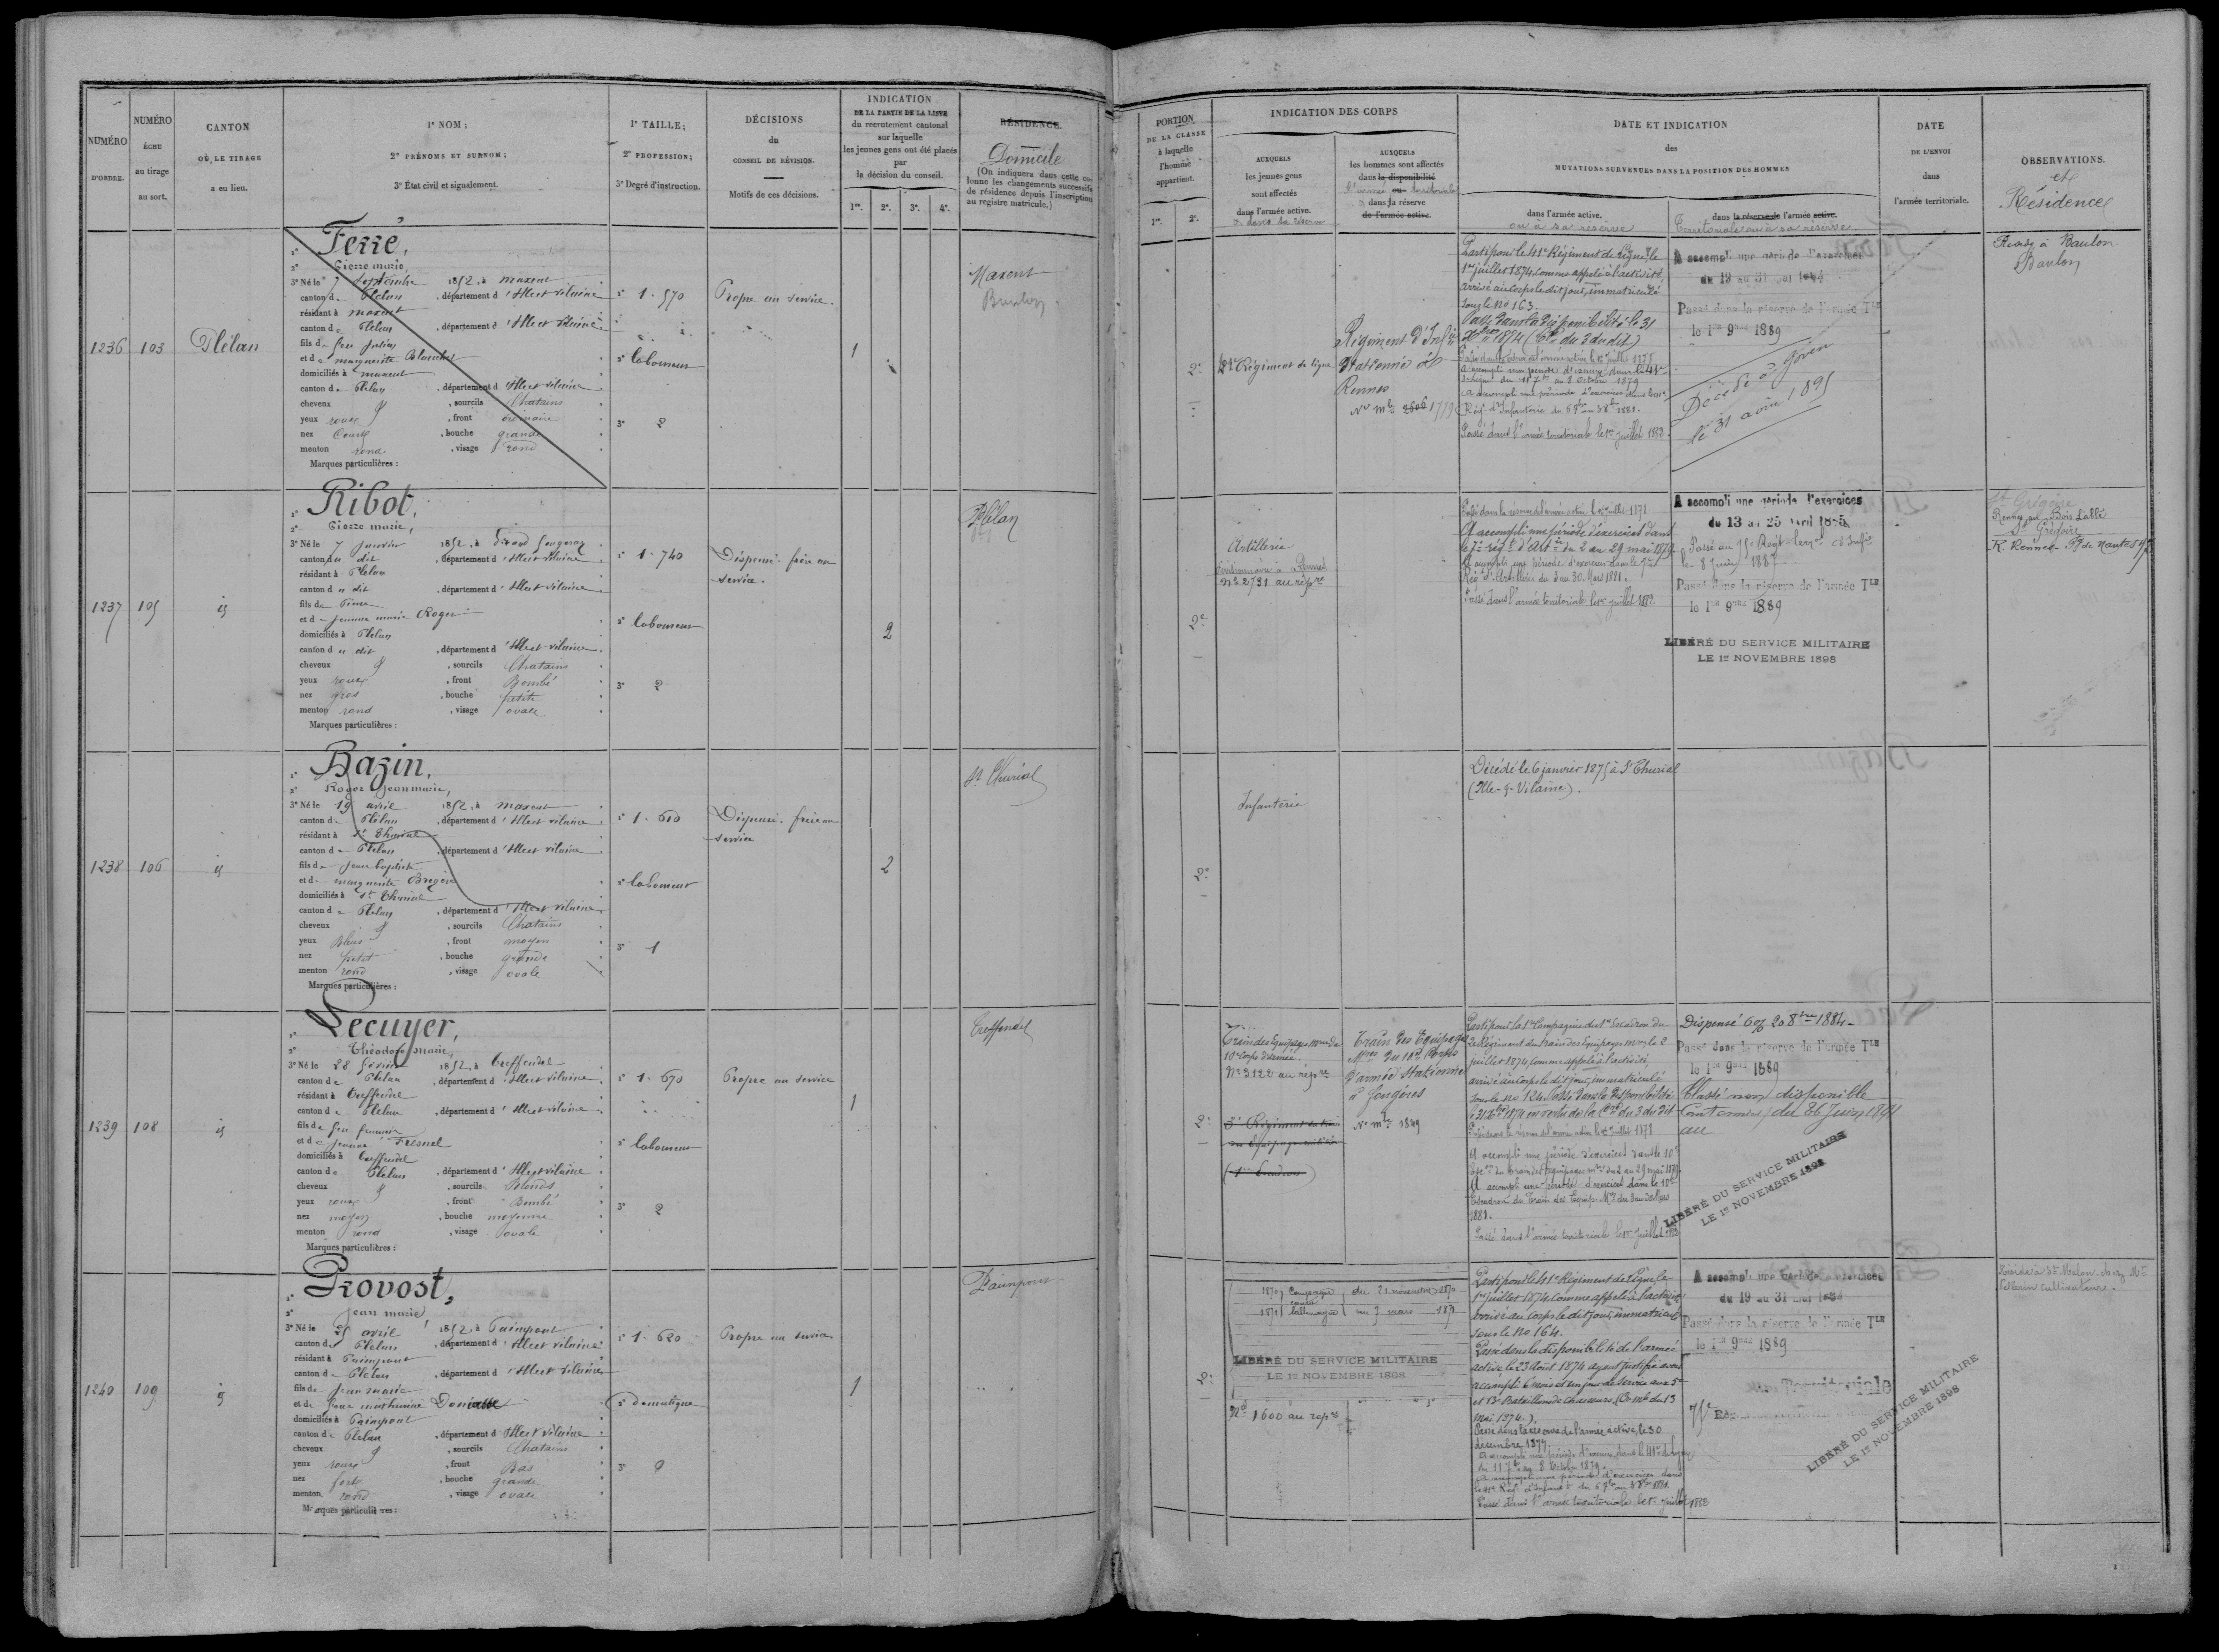 NUMÉRO
D'ORDRE.
NUMÉRO
ÉCHU
au tirage
au sort.
CANTON
OÙ LE TIRAGE
a eu lieu.
1° NOM;
2° PRÉNOMS ET SURNOM;
3° État civil et signalement.
1° TAILLE;
2° PROFESSION;
3° Degré d'instruction.
DÉCISIONS
du
CONSEIL DE RÉVISION.
Motifs de ces décisions.
INDICATION
DE LA PARTIE DE LA LISTE
du recrutement cantonal
sur laquelle
les jeunes gens ont été placés
par
la décision du conseil.
1re. 2e. 3e. 4e.
RÉSIDENCE.
Domicile
(On indiquera dans cette co-
lonne les changements successifs
de résidence depuis l'inscription
au registre matricule.)
1236
103
Plélan
1° Ferré,
2° Pierre marie,
3° Né le 7 septembre 1852, à maxent
canton de Plelan, département d'Ille et vilaine
résidant à maxent
canton de Plelan, département d'Ille et vilaine
fils de feu julien
et de marguerite
domiciliés à maxent
canton de Plelan, département d'Ille et vilaine
cheveux & sourcils Chatains
yeux roux, front ordinaire
nez Court, bouche grande
menton rond, visage rond
Marques particulières :
1° 1.570
2° laboureur
3° 2
Propre au service.
1
Maxent
Baulon
1237
105
id
1° Ribot,
2° Pierre marie,
3° Né le 7 janvier 1852, à
canton du dit, département d'Ille et vilaine
résidant à Plelan
canton du dit, département d'Ille et vilaine
fils de Pierre
et de jeanne marie Roger
domiciliés à Plelan
canton du dit, département d'Ille et vilaine
cheveux & sourcils Chatains
yeux roux, front Bombé
nez gros, bouche petite
menton rond, visage ovale
Marques particulières :
1° 1.740
2° laboureur
3° 2
Dispensé. frère au
service.
2
Plélan
1238
106
id
1° Bazin,
2° Roger jean marie,
3° Né le 19 avril 1852, à maxent
canton de Plélan, département d'Ille et vilaine
résidant à St Thurial
canton de Plelan, département d'Ille et vilaine
fils de jean baptiste
et de marguerite
domiciliés à St Thurial
canton de Plelan, département d'Ille et vilaine
cheveux & sourcils Chatains
yeux Bleus, front moyen
nez petit, bouche grande
menton rond, visage ovale
Marques particulières :
1° 1.610
2° laboureur
3° 1
Dispensé. frère au
service
2
St Thurial
1239
108
id
1° Lecuyer,
2° Théodore marie,
3° Né le 28 février 1852, à Treffendel
canton de Plelan, département d'Ille et vilaine
résidant à Treffendel
canton de Plelan, département d'Ille et vilaine
fils de feu francois
et de jeanne Fresnel
domiciliés à Treffendel
canton de Plelan, département d'Ille et vilaine
cheveux & sourcils Blonds
yeux roux, front Bombé
nez moyen, bouche moyenne
menton rond, visage ovale
Marques particulières :
1° 1.670
2° laboureur
3° 2
Propre au service
1
Treffendel
1240
109
id
1° Provost,
2° jean marie,
3° Né le 25 avril 1852, à Paimpont
canton de Plelan, département d'Ille et vilaine
résidant à Paimpont
canton de Plelan, département d'Ille et vilaine
fils de jean marie
et de
domiciliés à Paimpont
canton de Plelan, département d'Ille et vilaine
cheveux & sourcils Chatains
yeux roux, front Bas
nez fort, bouche grande
menton rond, visage ovale
Marques particulières :
1° 1.620
2° domestique
3° 0
Propre au service
1
Paimpont
PORTION
DE LA CLASSE
à laquelle
l'homme
appartient.
1re. 2e.
INDICATION DES CORPS
AUXQUELS
les jeunes gens
sont affectés
dans l'armée active.
& dans la réserve
AUXQUELS
les hommes sont affectés
dans la disponibilité
l'armée ou territoriale
& dans sa réserve
de l'armée active.
DATE ET INDICATION
des
MUTATIONS SURVENUES DANS LA POSITION DES HOMMES
dans l'armée active.
ou à sa réserve
dans la réserve de l'armée active.
Territoriale ou à sa réserve
DATE
DE L'ENVOI
dans
l'armée territoriale.
OBSERVATIONS.
et
Résidence
2e
41e Régiment de ligne
Régiment d'Infie
Stationné à
Rennes
No mle 2606 1779
Parti pour le 41e Régiment de Ligne le
1er juillet 1874 comme appelé à l'activité
arrivé au corps le dit jour, immatriculé
sous le No 163.
Passé dans la disponibilité le 31
Xbre 1874 (Cre du 3 du dit)
Passé dans la réserve de l'armée active le 1er juillet 1878
A accompli une période d'exercices dans le 41e
de ligne du 11 7bre au 8 Octobre 1879
A accompli une période d'exercices dans le 41e
Régt d'Infanterie du 6 7bre au 3 8bre 1881.
Passé dans l'armée territoriale le 1er juillet 1882.
A accompli une période d'exercices
du 19 au 31 mai 1886
Passé dans la réserve de l'armée Tle
le 1er 9bre 1889
Décédé à Goven
le 31 août 1895
Réside à Baulon
Baulon
2e
Artillerie
divisionnaire à Rennes
No 2731 au répre
Passé dans la réserve de l'armée active le 1er juillet 1878
A accompli une période d'exercices dans
le 7e régt d'Arte du 2 au 29 mai 1879.
A accompli une période d'exercices dans le 7e
Régt d'Artillerie du 3 au 30 Mars 1881.
Passé dans l'armée territoriale le 1er juillet 1882
A accompli une période d'exercices
du 13 au 25 Avril 1885
Passé au 75e Régt terrial d'Infie
le 8 juin 1887
Passé dans la réserve de l'armée Tle
le 1er 9bre 1889
LIBÉRÉ DU SERVICE MILITAIRE
LE 1er NOVEMBRE 1898
St Grégoire
Rennes Bois Labbé
St Grégoire
R. Rennes Fg de Nantes
2e
Infanterie
Décédé le 6 janvier 1875 à St Thurial
(Ille-&-Vilaine).
2e
Train des Equipages mres du
10e Corps d'armée.
No 3122 au répre
3e Régiment du train
des Equipages militaires
(1er Escadron)
Train des Equipages
Mres du 10e Corps
d'armée stationné
à Fougères
No mle 1849
Parti pour la 1re Compagnie du 1er Escadron du
2e Régiment du train des Equipages mres le 2
juillet 1874 comme appelé à l'activité,
arrivé au corps le dit jour, immatriculé
sous le No 124. Passé dans la disponibilité
le 31 Xbre 1874 en vertu de la Cre du 3 du dit
Passé dans la réserve de l'armée active le 1er juillet 1878
A accompli une période d'exercices dans le 10e
Esce du train des Equipages mres du 2 au 29 mai 1879
A accompli une période d'exercices dans le 10e
Escadron du Train des Equip. Mres du 3 au 30 Mars
1881.
Passé dans l'armée territoriale le 1er juillet 1883
Dispensé 20 8bre 1884
Passé dans la réserve de l'armée Tle
le 1er 9bre 1889
Classé non disponible
Cantonnier du 26 Juin 1891
au
LIBÉRÉ DU SERVICE MILITAIRE
LE 1er NOVEMBRE 1898
2e
1870 Campagne du 21 novembre 1870
contre
1871 l'allemagne au 7 mars 1871
LIBÉRÉ DU SERVICE MILITAIRE
LE 1er NOVEMBRE 1898
No 1600 au répre
Parti pour le 41e Régiment de Ligne le
1er juillet 1874 comme appelé à l'activité
arrivé au corps le dit jour, immatriculé
sous le No 164.
Passé dans la disponibilité de l'armée
active le 23 Août 1874 ayant justifié avoir
accompli 6 mois et un jour de service aux 5e
et 13e Bataillons de Chasseurs. (Cre mlle du 13
Mai 1874.).
Passé dans la réserve de l'armée active, le 30
décembre 1877
A accompli une période d'exercices dans le 41e de ligne
du 11 7bre au 8 Octobre 1879.
A accompli une période d'exercices dans
le 41e Régt d'Infanterie du 6 7bre au 3 8bre 1881.
Passé dans l'armée territoriale le 1er juillet 1882
A accompli une période d'exercices
du 19 au 31 mai 1886
Passé dans la réserve de l'armée Tle
le 1er 9bre 1889
Territoriale
LIBÉRÉ DU SERVICE MILITAIRE
LE 1er NOVEMBRE 1898
Réside à St Malon chez Mr
Pellerin cultivateur.